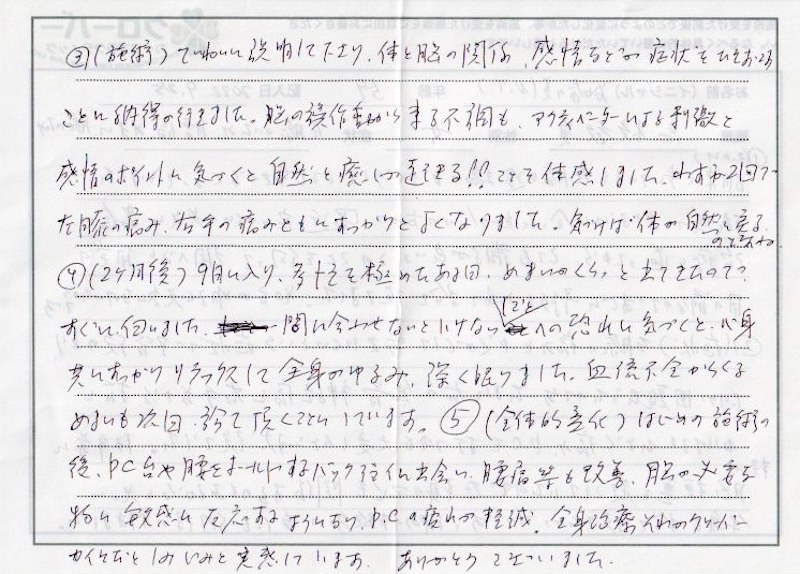 ③(施術)ていねいに説明して下さり、体と脳の関係、感情などが症状をひきおこす
ことに納得が行きました。脳の誤作動から来る不調も、アクティベーターによる刺激と
感情のポイントに気づくと自然と癒しが起きる!!ことを体感しました。わずか2回で
左膝の痛み、右手の痛みともにすっかりとよくなりました。気づけば体が自然に戻る
のですね。
④(2ヶ月後)9月に入り、多忙を極めたある日、めまいのくらっと出てきたので
すぐに伺いました。間に合わせないといけないことへの恐れに気づくと、心身
共にすっかりリラックスして全身のゆるみ、深く眠りました。血流不全からくる
めまいも次回診て頂くことにしています。⑤(全体的変化)はじめの施術の
後、PC台や腰をホールドするバック 出会い、腰痛 も改善、脳が必要な
物に敏感に反応するようになり、P.C.の疲れが軽減。全身治療それがクローバー
カイロだとしみじみと実感しています。ありがとうございました。
クローバー